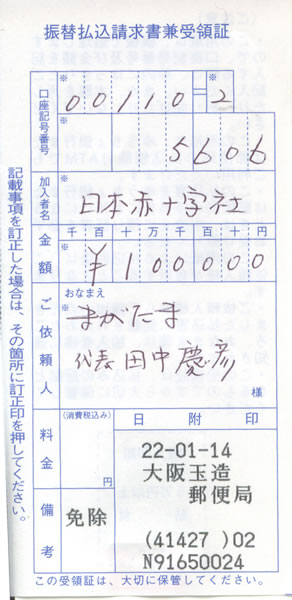 振替払込請求書兼受領証
口座記号番号
※ ※
00110=2
※
5606
加入者名
※
日本赤十字社
金額
千 百 十 万 千 百 十 円
※
¥100000
ご依頼人
おなまえ
※
まがたま
代表 田中慶彦
様
料金
(消費税込み)
円
備考
免除
日附印
22-01-14
大阪玉造
郵便局
(41427 )02
N91650024
この受領証は、大切に保管してください。
記載事項を訂正した場合は、その箇所に訂正印を押してください。